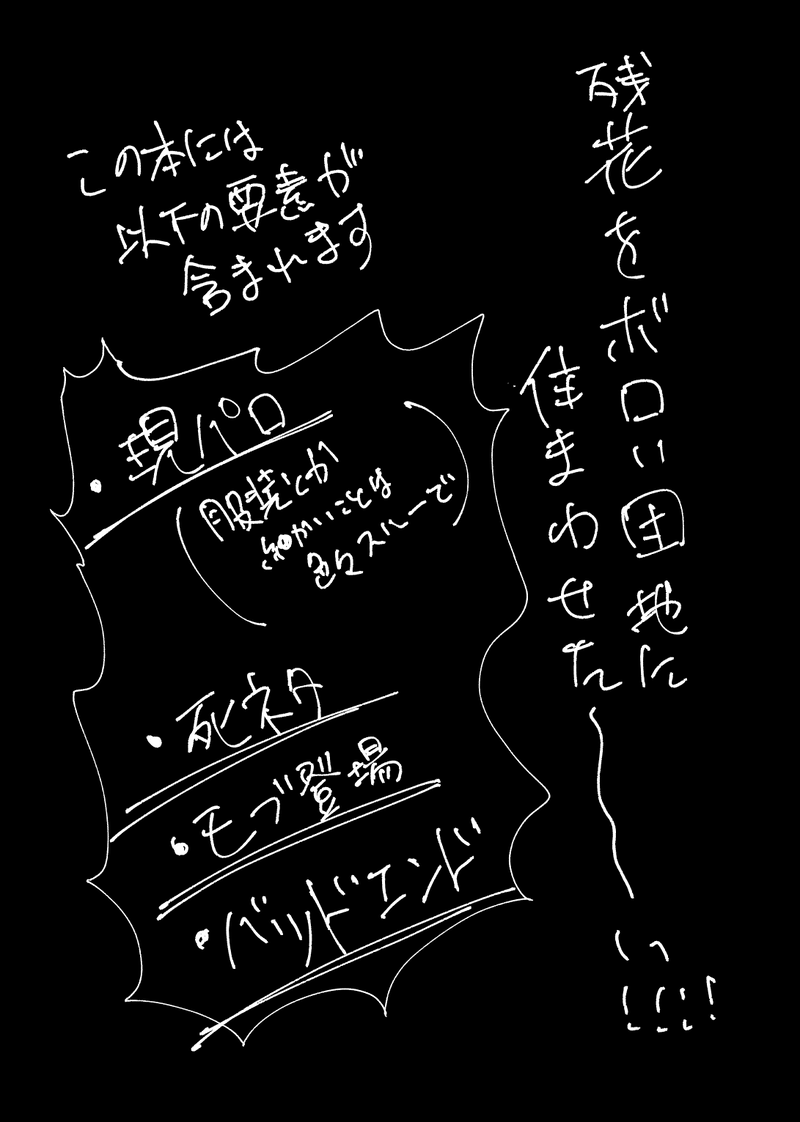 残花をボロい団地に
住まわせた〜いっ!!!!
この本には
以下の要素が
含まれます
・現パロ
(服装とか
細かいことは
全スルーで)
・死ネタ
・モブ登場
・バッドエンド